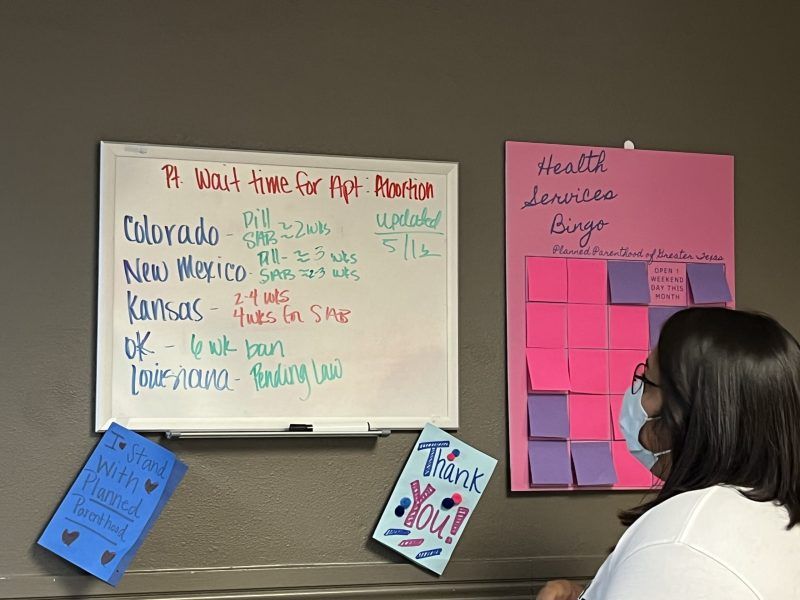 Pt. Wait time for Apt: Abortion
updated
5/13
Colorado - Pill ≈ 2 wks
SAB ≈ 2 wks
New Mexico - Pill - ≈ 3 wks
SAB ≈ 2-3 wks
Kansas - 2-4 wks
4 wks for SAB
OK - 6 wk ban
Louisiana - Pending Law
Health
Services
Bingo
Planned Parenthood of Greater Texas
OPEN 1
WEEKEND
DAY THIS
MONTH
I Stand
With
Planned
Parenthood
Thank
You!